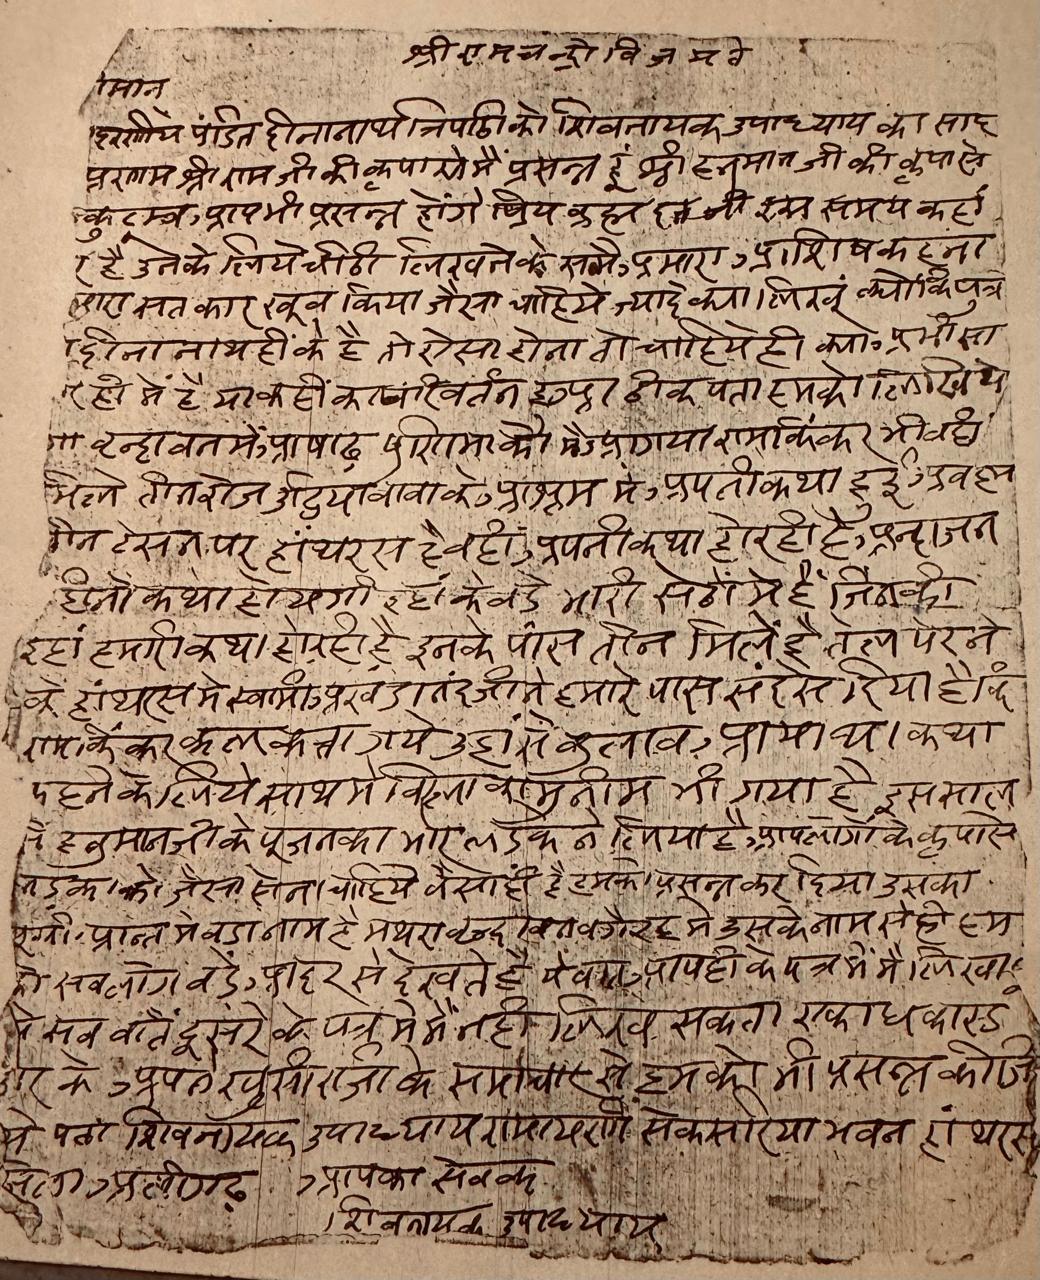 श्री रामचन्द्रो विजयते
मान
पंडित दीनानाथ त्रिपाठी को शिवनायक उपाध्याय का साद
प्रणाम श्री राम जी की कृपा से मैं प्रसन्न हूं श्री हनुमान जी की कृपा से
कुटुम्ब आप भी प्रसन्न होंगे प्रिय इस समय कहां
है उनके लिये चीठी लिखने के समै हमारा आशिष कहना
सतकार खूब किया जैसा चाहिये ज्यादे क्या लिखूं क्योंकि पुत्र
दीनानाथ ही के है तो ऐसा होना तो चाहिये ही क्या अभी
ही में है या कहीं का परिवर्तन हुआ ठीक पता हमको लिखिये
वृन्दावन में आषाढ़ पूर्णिमा को मै आ गया रामकिंकर भी वहां
मिले तीन रोज उड़िया बाबा के आश्रम में अपनी कथा हुई अब हम
टेसन पर हांथरस है वहीं अपनी कथा हो रही है अन्दाजन
दीनो कथा होयगी इहां के बडे भारी सेठों मे हैं जिनकी
इहां हमारी कथा हो रही है इनके पांस तीन मिलें है तेल पेरने
के हांथरस मे स्वामी अखंडानंद जी ने हमारे पास संदेस दिया है कि
रामकिंकर कलकत्ता गये उहां से बुलाव आया था कथा
कहने के लिये साथ मे विरला का मुनीम भी गया है इस साल
हनुमान जी के पूजन का भार लडके ने लिया है आप लोगों के कृपा से
लडका को जैसा होना चाहिये वैसा ही है हमको प्रसन्न कर दिया उसका
प्रान्त मे बडा नाम है मथरा वृन्दावन वगैरह मे उसके नाम से ही हम
को सब लोग बडे आदर से देखते है ये बात आप ही के पत्र में मै लिखा हूं
ये सब बातें दूसरे के पत्र मे मैं नही लिख सकता एकाध कार्ड
के अपने खुसी राजी के समाचार से हमको भी प्रसन्न कीजि
ये पता शिवनायक उपाध्याय रामायणी सेकसरिया भवन हांथरस
जिला अलीगढ़ आपका सेवक
शिवनायक उपाध्याय